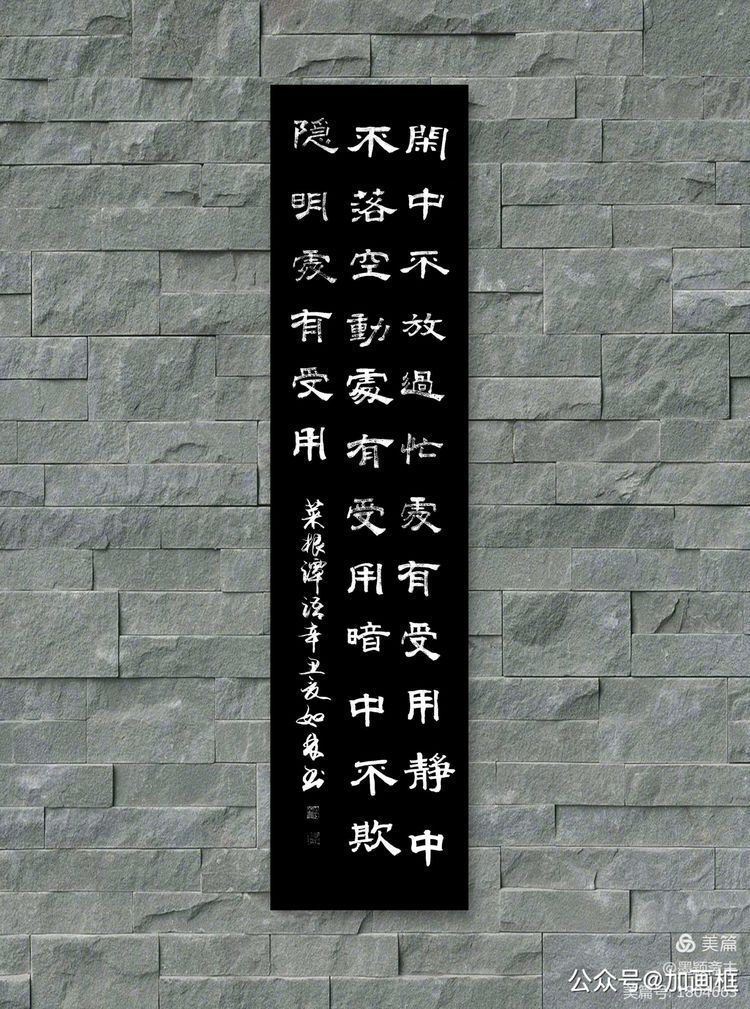 閑中不放過忙處有受用靜中
不落空動處有受用暗中不欺
隐明處有受用
菜根潭语辛丑夏如林书
美篇
公众号@加画框
美篇号: